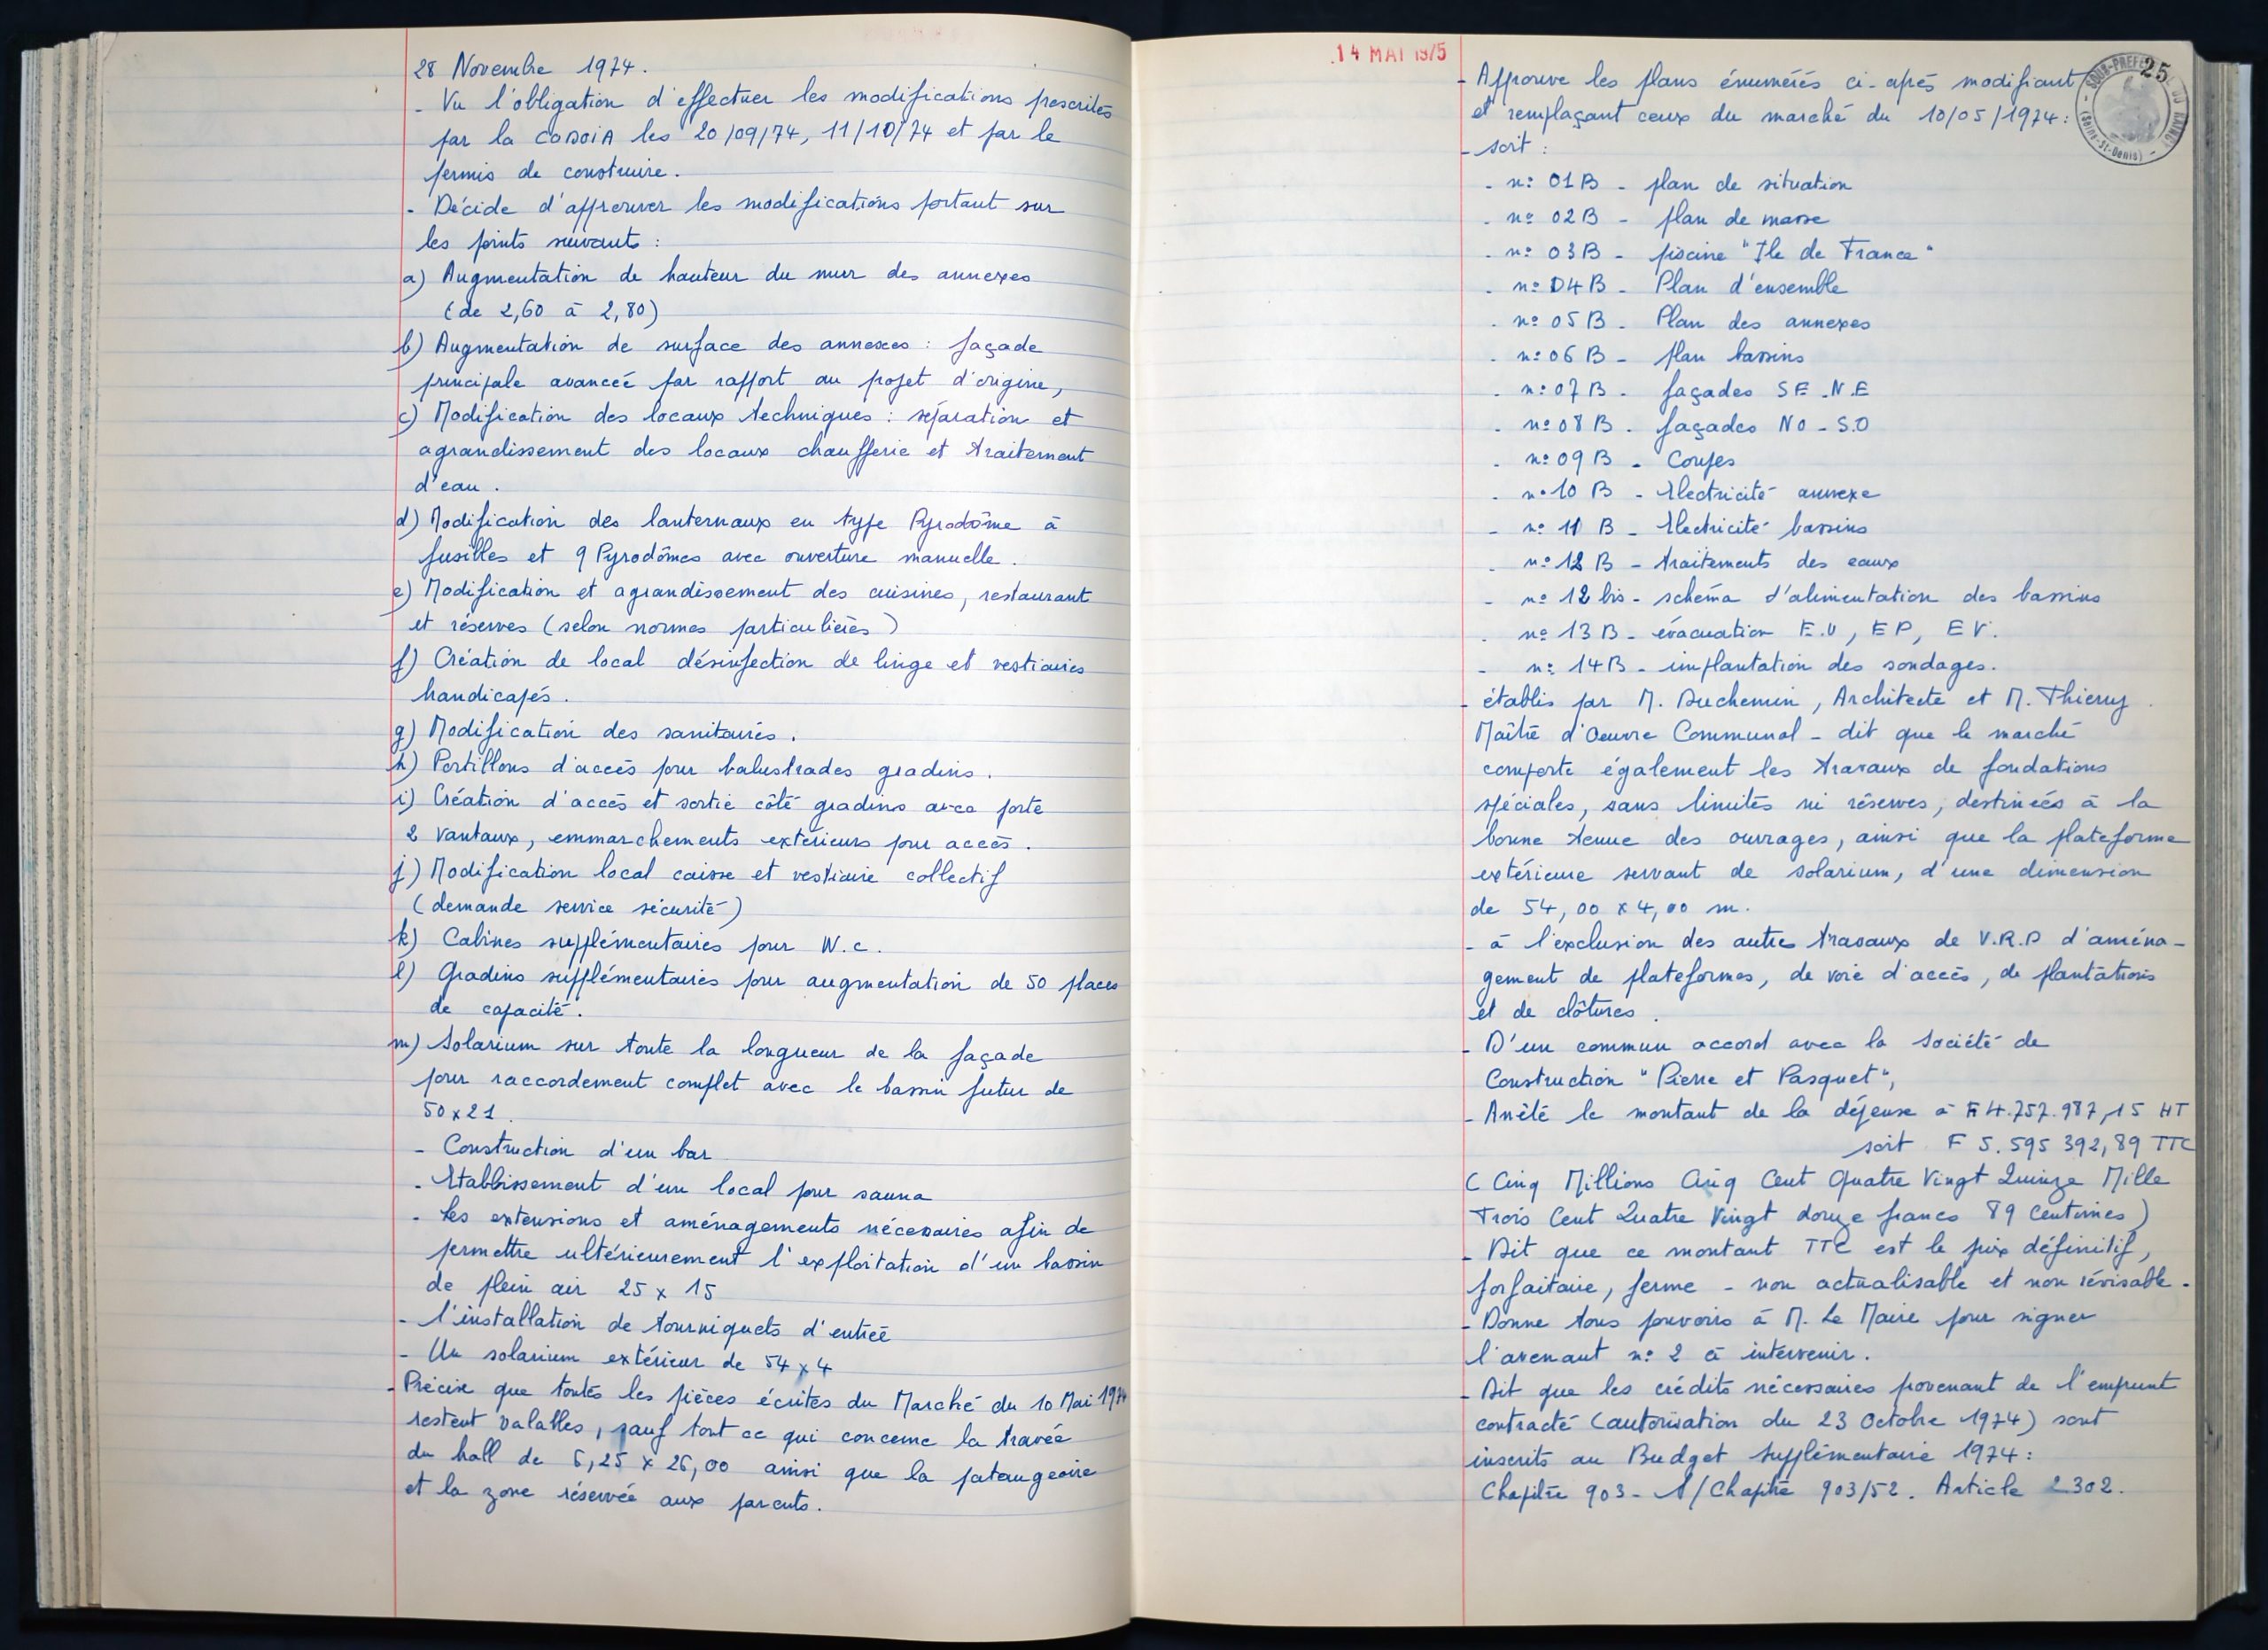 28 Novembre 1974.
- Vu l'obligation d'effectuer les modifications prescrites
par la CODOIA les 20/09/74, 11/10/74 et par le
permis de construire.
- Décide d'approuver les modifications portant sur
les points suivants :
a) Augmentation de hauteur du mur des annexes
(de 2,60 à 2,80)
b) Augmentation de surface des annexes : façade
principale avancée par rapport au projet d'origine,
c) Modification des locaux techniques : séparation et
agrandissement des locaux chaufferie et traitement
d'eau.
d) Modification des lanternaux en type Pyrodôme à
fusibles et 9 Pyrodômes avec ouverture manuelle.
e) Modification et agrandissement des cuisines, restaurant
et réserves (selon normes particulières)
f) Création de local désinfection de linge et vestiaires
handicapés.
g) Modification des sanitaires.
h) Portillons d'accès pour balustrades gradins.
i) Création d'accès et sortie côté gradins avec porte
2 vantaux, emmarchements extérieurs pour accès.
j) Modification local caisse et vestiaire collectif
(demande service sécurité)
k) Cabines supplémentaires pour W.c.
l) Gradins supplémentaires pour augmentation de 50 places
de capacité.
m) Solarium sur toute la longueur de la façade
pour raccordement complet avec le bassin futur de
50x21.
- Construction d'un bar
- Etablissement d'un local pour sauna
- Les extensions et aménagements nécessaires afin de
permettre ultérieurement l'exploitation d'un bassin
de plein air 25 x 15
- l'installation de tourniquets d'entrée
- Un solarium extérieur de 54 x 4
- Précise que toutes les pièces écrites du Marché du 10 Mai 1974
restent valables, sauf tout ce qui concerne la travée
du hall de 6,25 x 26,00 ainsi que la pataugeoire
et la zone réservée aux parents.
14 MAI 1975
25
SOUS-PREFECTURE DU RAINCY
(Seine-St-Denis)
- Approuve les plans énumérés ci-après modifiant
et remplaçant ceux du marché du 10/05/1974 :
- soit :
- n° 01 B - plan de situation
- n° 02 B - plan de masse
- n° 03 B - piscine "Ile de France"
- n° 04 B - Plan d'ensemble
- n° 05 B - Plan des annexes
- n° 06 B - plan bassins
- n° 07 B - façades SE - N.E
- n° 08 B - façades NO - S.O
- n° 09 B - Coupes
- n° 10 B - Electricité annexe
- n° 11 B - Electricité bassins
- n° 12 B - traitements des eaux
- n° 12 bis - schéma d'alimentation des bassins
- n° 13 B - évacuation E.U, EP, EV.
- n° 14 B - implantation des sondages.
- établis par M. Duchemin, Architecte et M. Thierry
Maître d'Oeuvre Communal - dit que le marché
comporte également les travaux de fondations
spéciales, sans limites ni réserves, destinées à la
bonne tenue des ouvrages, ainsi que la plateforme
extérieure servant de solarium, d'une dimension
de 54,00 x 4,00 m.
- à l'exclusion des autres travaux de V.R.D d'aména-
gement de plateformes, de voie d'accès, de plantations
et de clôtures.
- D'un commun accord avec la Société de
Construction "Pierre et Pasquet",
- Arrêté le montant de la dépense à F 4.757.987,15 HT
soit F 5.595 392,89 TTC
(Cinq Millions Cinq Cent Quatre Vingt Quinze Mille
Trois Cent Quatre Vingt douze francs 89 Centimes)
- Dit que ce montant TTC est le prix définitif,
forfaitaire, ferme - non actualisable et non révisable -
- Donne tous pouvoirs à M. Le Maire pour signer
l'avenant n° 2 à intervenir.
- Dit que les crédits nécessaires provenant de l'emprunt
contracté (autorisation du 23 Octobre 1974) sont
inscrits au Budget supplémentaire 1974 :
Chapitre 903 - S/Chapitre 903/52. Article 2302.